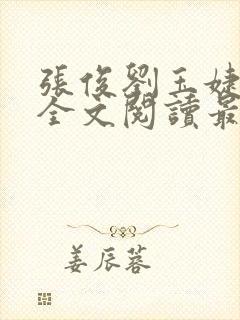 張俊劉玉婕
全文閱讀最
姜辰蓉